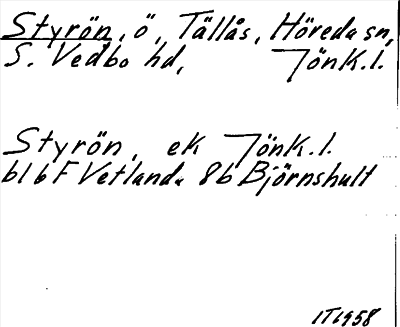 Styrön, ö, Tällås, Höreda sn,
S. Vedbo hd, Jönk.l.
Styrön, ek Jönk.l.
bl 6F Vetlanda 8b Björnshult
IT1958